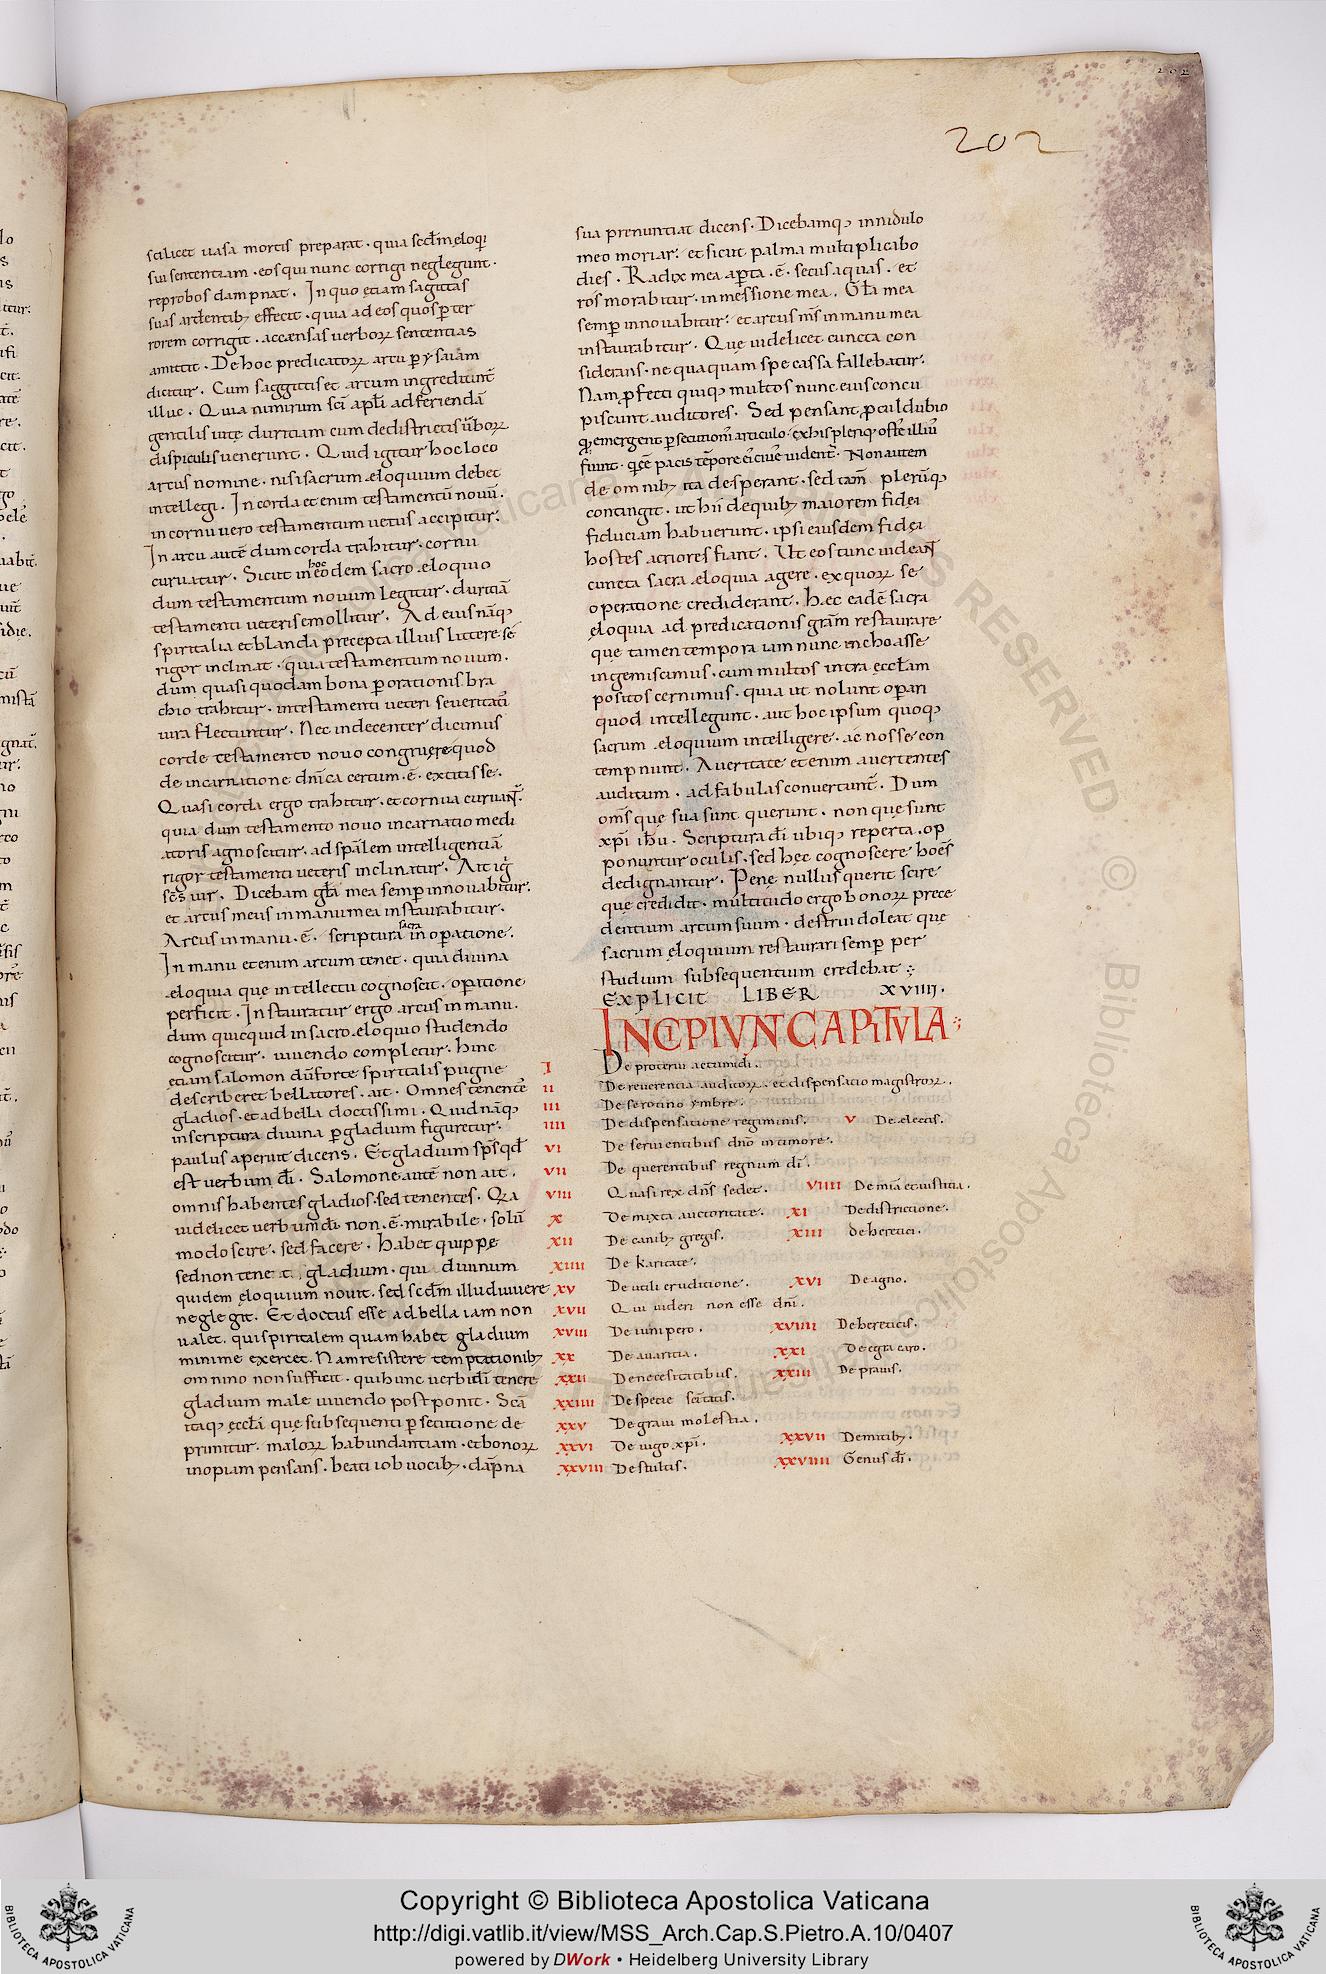 202
scilicet uasa mortis preparat · quia sectm̄ eloqı
sui sententiam · eos qui nunc corrigi neglegunt ·
reprobos dampnat . In quo ętiam sagittas
suas ardentib; effecit · quia ad eos quos p̄ ter
rorem corrigit · accensas uerborꝝ sententias
amittit . De hoc predicatorꝝ arcu p̄ ysaiam
dicitur . Cum saggittis et arcum ingrediunt̄
illuc . Quia nimirum sc̄i apl̄i ad feriendā
gentilis uitę duritiam cum de districtis ūborꝝ
dispiculis uenerunt . Quid igitur hoc loco
arcus nomine · nisi sacrum ęloquium debet
intellegi . In corda et enim testamentū nouū .
in cornu uero testamentum uetus accipitur .
In arcu autē dum corda trahitur · cornu
curuatur . Sicut in hoc eodem sacro ęloquio
dum testamentum nouum legitur · durtiā
testamenti ueteris emollitur . Ad eius nāq;
spiritalia et blanda precepta illius littere sē
rigor inclinat · quia testamentum nouum .
dum quasi quodam bona p̄orationis bra
chio trahitur · in testamenti ueteri seueritatū
iura flectuntur . Nec indecenter dicimus
corde testamento nouo congruere quod
de incarnatione dnīca certum · ē · extitisse .
Quasi corda ergo trahitur · et cornua curuant̄ .
quia dum testamento nouo incarnatio medi
atoris agnoscitur · ad sp̄alem intelligentiā
rigor testamenti ueteris inclinatur . Ait igı̄
sc̄s uir . Dicebam gl̄a mea semp̄ innouabitur .
et arcus meus in manu mea instaurabitur .
Arcus in manu · ē · scriptura sacra in op̄atione .
In manu et enim arcum tenet · quia diuina
ęloquia que intellectu cognoscit · op̄atione
perficit . Instauratur ergo arcus in manu .
dum quicquid in sacro ęloquio studendo
cognoscitur · uiuendo completur . hinc
ętiam salomon dū forte spiritalis pugne
describeret bellatores · ait . Omnes tenente͛
gladios · et ad bella doctissimi . Quid nāq;
in scriptura diuina p̄ gladium figuretur .
paulus aperuit dicens . Et gladium sp̄s qd̄
est uerbum dī . Salomone autē non ait .
omnis habentes gladios · sed tenentes . Qꝛa
uidelicet uerbum dī non · ē · mirabile · solū
modo scire · sed facere . habet quippe
sed non tenet · gladium · qui diuinum
quidem ęloquium nouit · sed scdm̄ illud uiuere
neglegit . Et doctus esse ad bella iam non
ualet · qui spiritalem quam habet gladium
minime exercet . Nam resistere temptationib;
omnino non sufficit · qui hunc uerbi dī tenere
gladium male uiuendo postponit . Sc̄a
itaq; ęccl̄a que subsequenti p̄secutione de
primitur · malorꝝ habundantiam · et bonorꝝ
inopiam pensans · beati iob uocib; · dāpna
sua prenuntiat dicens · Dicebamq; in nidulo
meo moriar : et sicut palma multiplicabo
dies . Radix mea ap̄ta · ē · secus aquas . et
ros morabitur · in messione mea . Gl̄a mea
semp̄ innouabitur : et arcus m̄s in manu mea
instaurabitur . Quę uidelicet cuncta con
siderans · ne quaquam spe cassa fallebatur .
Nam p̄fecti quiq; multos nunc eius concu
piscunt auditores . Sed pensant p̄culdubio
q; emergent p̄secutionī articulo · ex his pleriq; oste illiū
fiunt · q; eē pacis tēpore eī ciue uident̄ . Non autem
de omnib; ita desperant · sed tam̄ plerūq;
contingit . ut hii de quib; maiorem fidei
fiduciam habuerunt · ipsi eiusdem fidei
hostes acriores fiant . Ut eos tunc uideant̄
cuncta sacra ęloquia agere · ex quorꝝ se
operatione crediderant . hęc eadē sacra
ęloquia ad predicationis grām restaurare
que tamen tempora iam nunc inchoasse
ingemiscimus · cum multos intra ęccl̄am
positos cernimus · quia ut nolunt op̄ari
quod intellegunt · aut hoc ipsum quoq;
sacrum ęloquium intelligere · ac nosse con
tempnunt . A ueritate et enim auertentes
auditum · ad fabulas conuertunt̄ . Dum
om̄s que sua sunt querunt · non que sunt
xp̄i ih̄u . Scriptura dī ubiq; reperta · op
ponuntur oculis · sed hęc cognoscere hoēs
dedignantur . Penę nullus querit scire
que credidit · multitudo ergo bonorꝝ prece
dentium arcum suum · destrui doleat que
sacrum ęloquium restaurari semp̄ per
studium subsequentium credebat ·:
EXPLICIT LIBER XVIIII .
INCIPIVNT CAPITVLA ·:
I De proterui aetumidi .
II De reuerencia auditorꝝ · et dispensatio magistrorꝝ .
III De serotino ymbre .
IIII De dispensatione regiminis . V De electis .
VI De seruientibus dn̄o in timore .
VII De querentibus regnum dī .
VIII Quasi rex dn̄s sedet . VIIII De mīa et iustitia .
X De mixta auctoritate . XI De districtione .
XII De canib; gregis . XIII de heretici .
XIIII De karitate .
XV De utili eruditione . XVI De agno .
XVII Qui uideri non esse dnī .
XVIII De iunipero . XVIIII De hereticis .
XX De auaritia . XXI De egra caro .
XXII De necessitatibus . XXIII De prauis .
XXIIII De specie sc̄itatis .
XXV De graui molestia .
XXVI De uigo xp̄i . XXVII De mitib; .
XXVIII De stultis . XXVIIII Genus dī .
Copyright © Biblioteca Apostolica Vaticana
http://digi.vatlib.it/view/MSS_Arch.Cap.S.Pietro.A.10/0407
powered by DWork • Heidelberg University Library
BIBLIOTECA APOSTOLICA VATICANA
BIBLIOTECA APOSTOLICA VATICANA